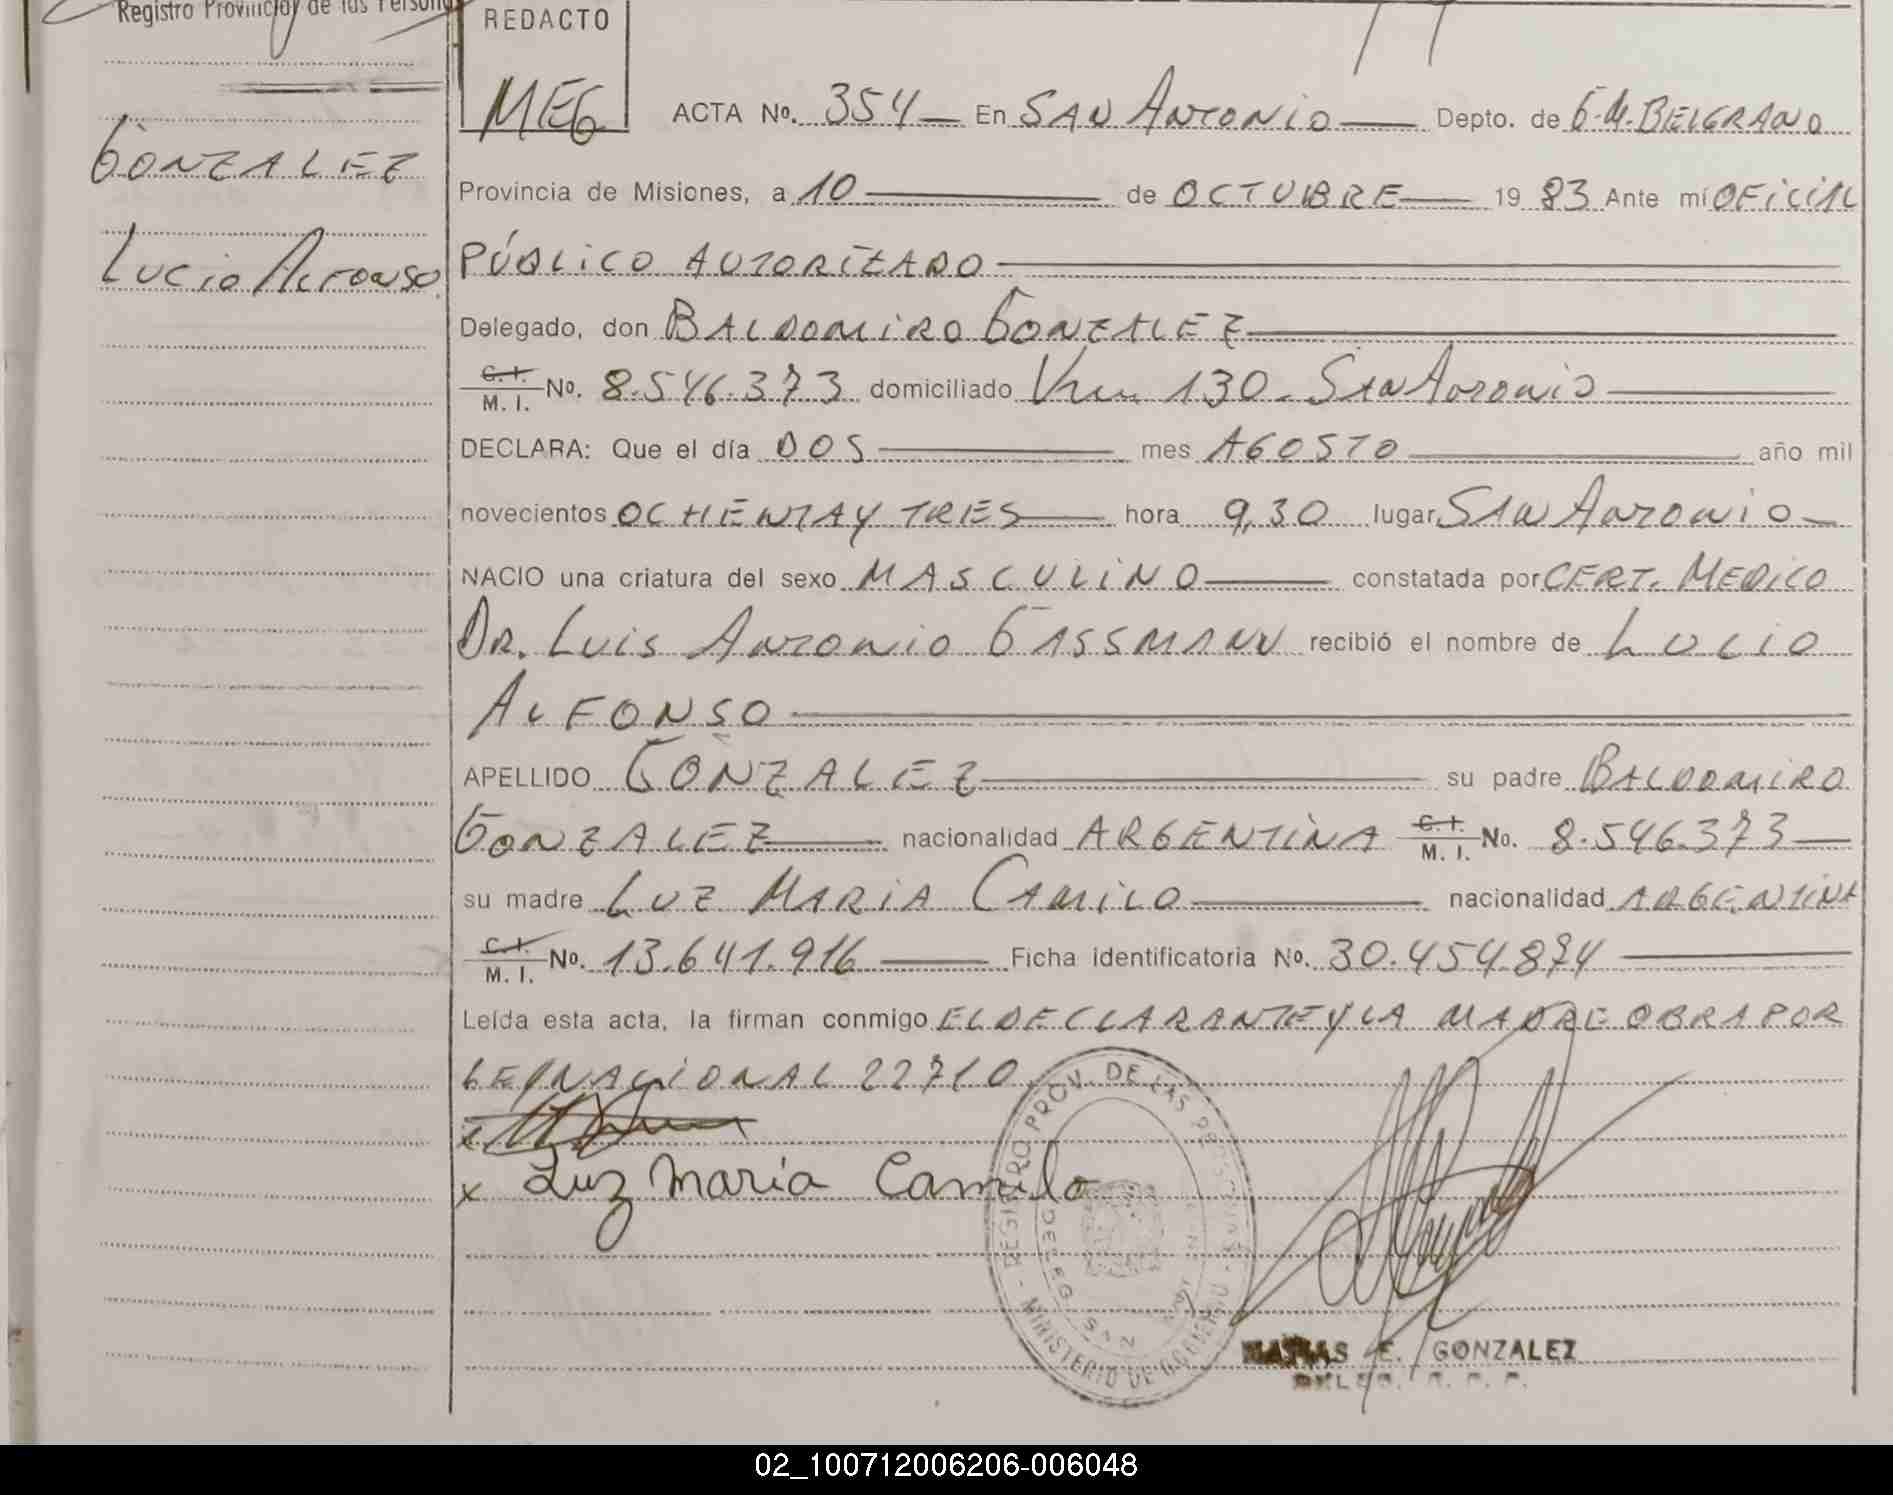 Registro Provincial de las Persona
REDACTO
MEG
GONZALEZ
LUCIO ALFONSO
ACTA No. 354 En SAN ANTONIO Depto. de G.M. BELGRANO
Provincia de Misiones, a 10 de OCTUBRE 19 83 Ante mí OFICIAL
PÚBLICO AUTORIZADO
Delegado, don BALDOMIRO GONZALEZ
C. I. M. I. No. 8.546.373 domiciliado Km 130 - SAN ANTONIO
DECLARA: Que el día DOS mes AGOSTO año mil
novecientos OCHENTA Y TRES hora 9,30 lugar SAN ANTONIO
NACIO una criatura del sexo MASCULINO constatada por CERT. MEDICO
DR. LUIS ANTONIO GASSMANN recibió el nombre de LUCIO
ALFONSO
APELLIDO GONZALEZ su padre BALDOMIRO
GONZALEZ nacionalidad ARGENTINA C. I. M. I. No. 8.546.373
su madre LUZ MARIA CAMILO nacionalidad ARGENTINA
C. I. M. I. No. 13.641.916 Ficha identificatoria No. 30.454.874
Leída esta acta, la firman conmigo EL DECLARANTE Y LA MADRE OBRA POR
LEY NACIONAL 22710
x
x Luz Maria Camilo
REGISTRO PROV. DE LAS PERSONAS - MINISTERIO DE GOBIERNO
E. GONZALEZ
02_100712006206-006048